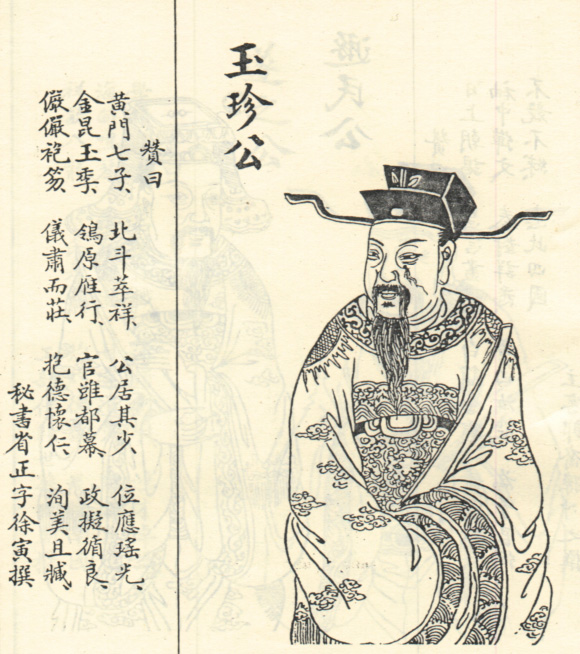 玉珍公
贊曰
黃門七子、北斗萃祥、公居其少、位應瑤光、
金昆玉季、鴒原雁行、官雖都幕、政擬循良、
儼儼袍笏、儀肅而莊、抱德懷仁、洵美且臧、
秘書省正字徐寅撰